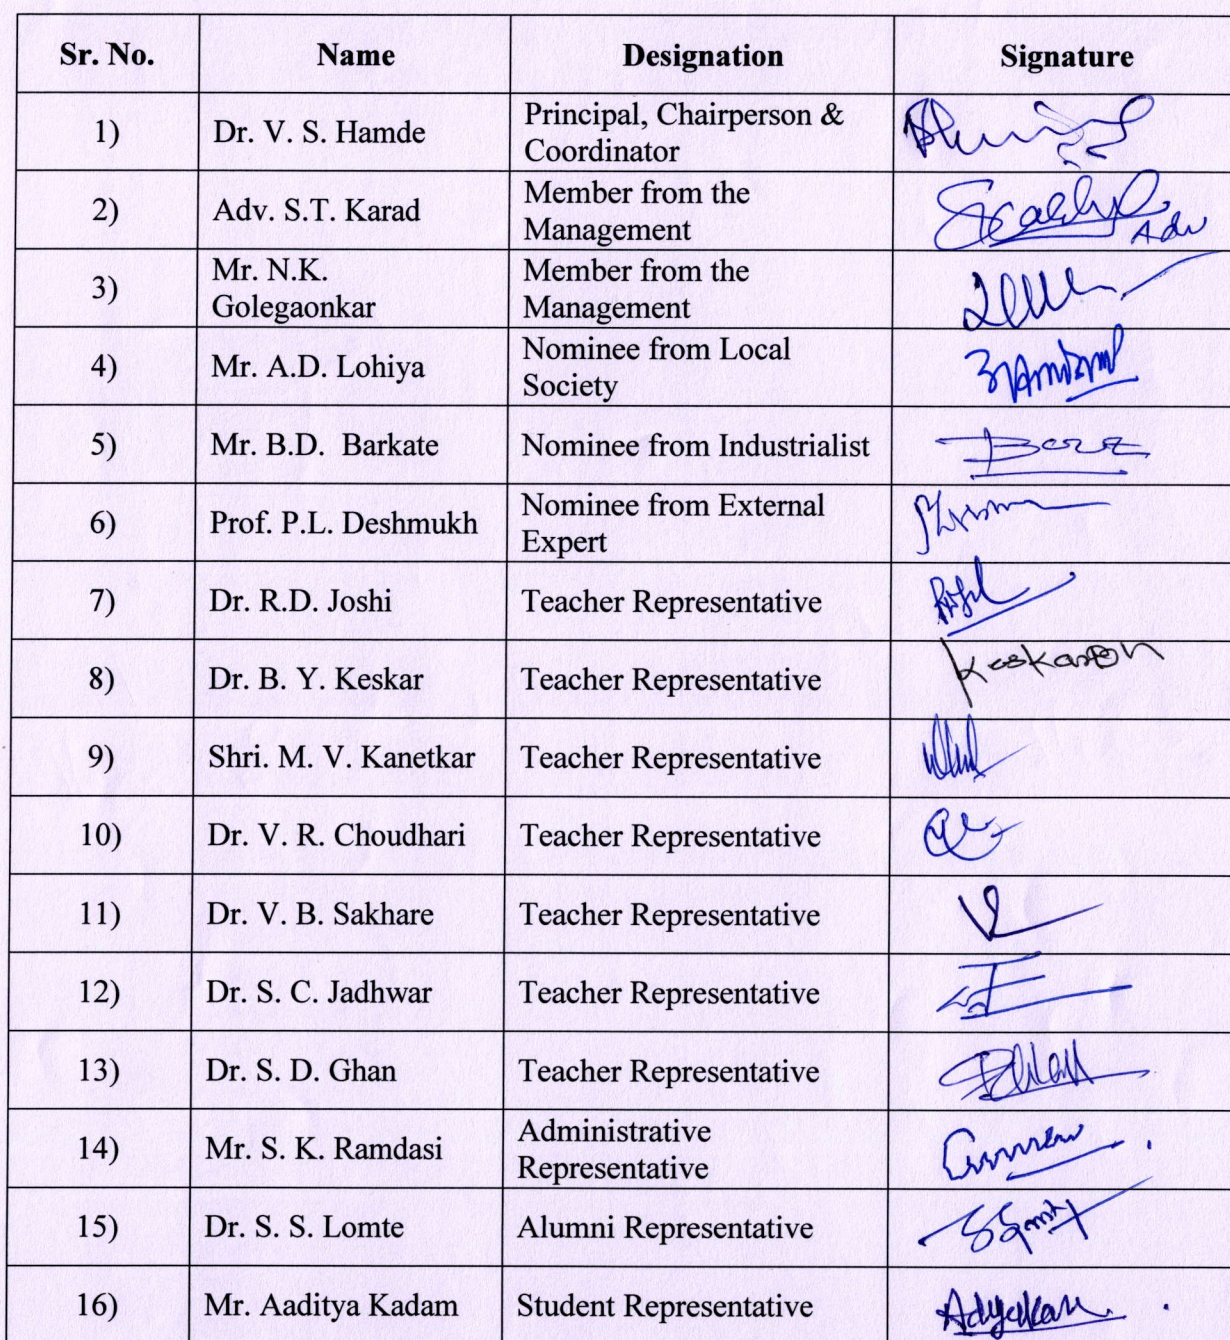 Sr. No. Name Designation Signature
1) Dr. V. S. Hamde Principal, Chairperson &
Coordinator
2) Adv. S.T. Karad Member from the
Management
Adv
3) Mr. N.K.
Golegaonkar
Member from the
Management
4) Mr. A.D. Lohiya Nominee from Local
Society
5) Mr. B.D. Barkate Nominee from Industrialist
6) Prof. P.L. Deshmukh Nominee from External
Expert
7) Dr. R.D. Joshi Teacher Representative
8) Dr. B. Y. Keskar Teacher Representative
9) Shri. M. V. Kanetkar Teacher Representative
10) Dr. V. R. Choudhari Teacher Representative
11) Dr. V. B. Sakhare Teacher Representative
12) Dr. S. C. Jadhwar Teacher Representative
13) Dr. S. D. Ghan Teacher Representative
14) Mr. S. K. Ramdasi Administrative
Representative
15) Dr. S. S. Lomte Alumni Representative
16) Mr. Aaditya Kadam Student Representative